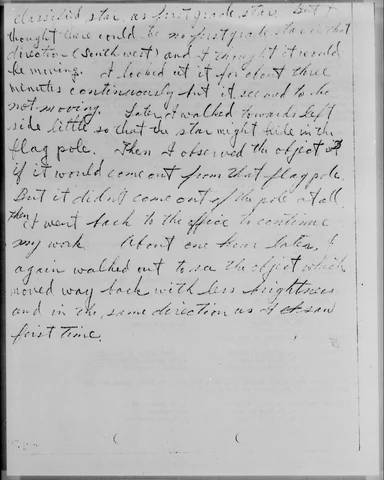 classified star, as first grade star. But I
thought there could be no first grade star in that
direction (Southwest) and I thought it would
be moving. I looked at it for about three
minutes continuously but it seemed to be
not moving. Later I walked towards left
side little so that the star might hide in the
flag pole. Then I observed the object
if it would come out from that flag pole.
But it didn't come out of the pole at all.
Then I went back to the office to continue
my work. About one hour later, I
again walked out to see the object which
moved way back with less brightness
and in the same direction as I saw
first time.